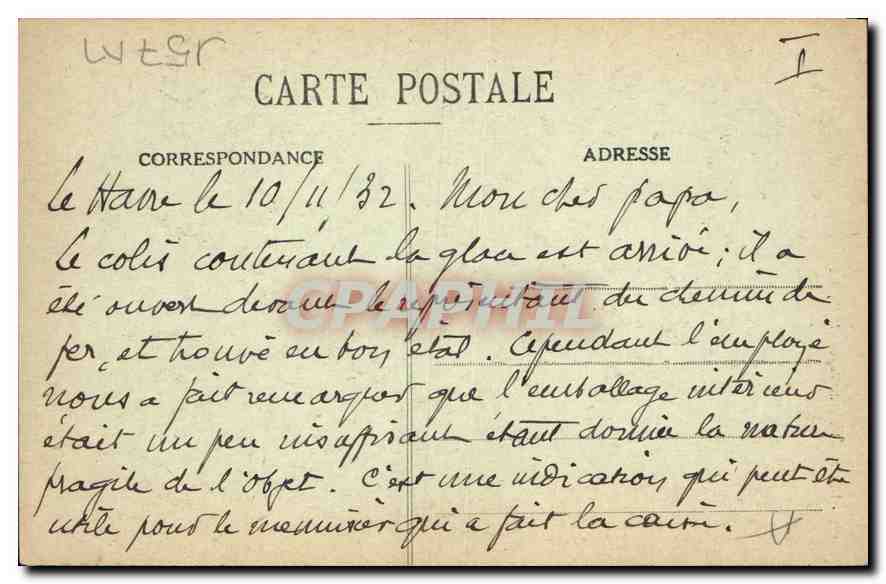 I
CARTE POSTALE
CORRESPONDANCE
ADRESSE
Le Havre le 10/11/32. Mon cher papa,
Le colis contenant la glace est arrivé ; il a
été ouvert devant le représentant du chemin de
fer, et trouvé en bon état. Cependant l'employé
nous a fait remarquer que l'emballage intérieur
était un peu insuffisant étant donnée la nature
fragile de l'objet. C'est une indication qui peut être
utile pour le menuisier qui a fait la caisse.
CPAPHIL